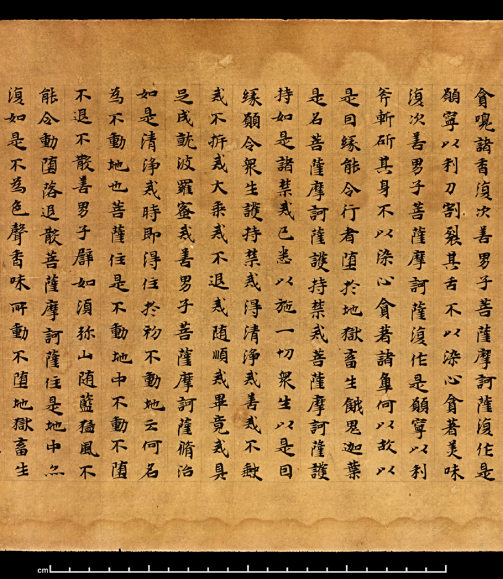 貪嗅諸香復次善男子菩薩摩訶薩復作是
願寧以利刀割裂其舌不以染心貪著美味
復次善男子菩薩摩訶薩復作是願寧以利
斧斬斫其身不以染心貪著諸觸何以故以
是因緣能令行者墮於地獄畜生餓鬼迦葉
是名菩薩摩訶薩護持禁戒菩薩摩訶薩護
持如是諸禁戒已悉以施一切衆生以是因
緣願令衆生護持禁戒得清淨戒善戒不缺
戒不析戒大乘戒不退戒随順戒畢竟戒具
足成就波羅蜜戒善男子菩薩摩訶薩脩治
如是清淨戒時即得住於初不動地云何名
為不動地也菩薩住是不動地中不動不堕
不退不散善男子辟如湏弥山随藍猛風不
能令動堕落退散菩薩摩訶薩住是地中亦
復如是不為色聲香味所動不堕地獄畜生
cm